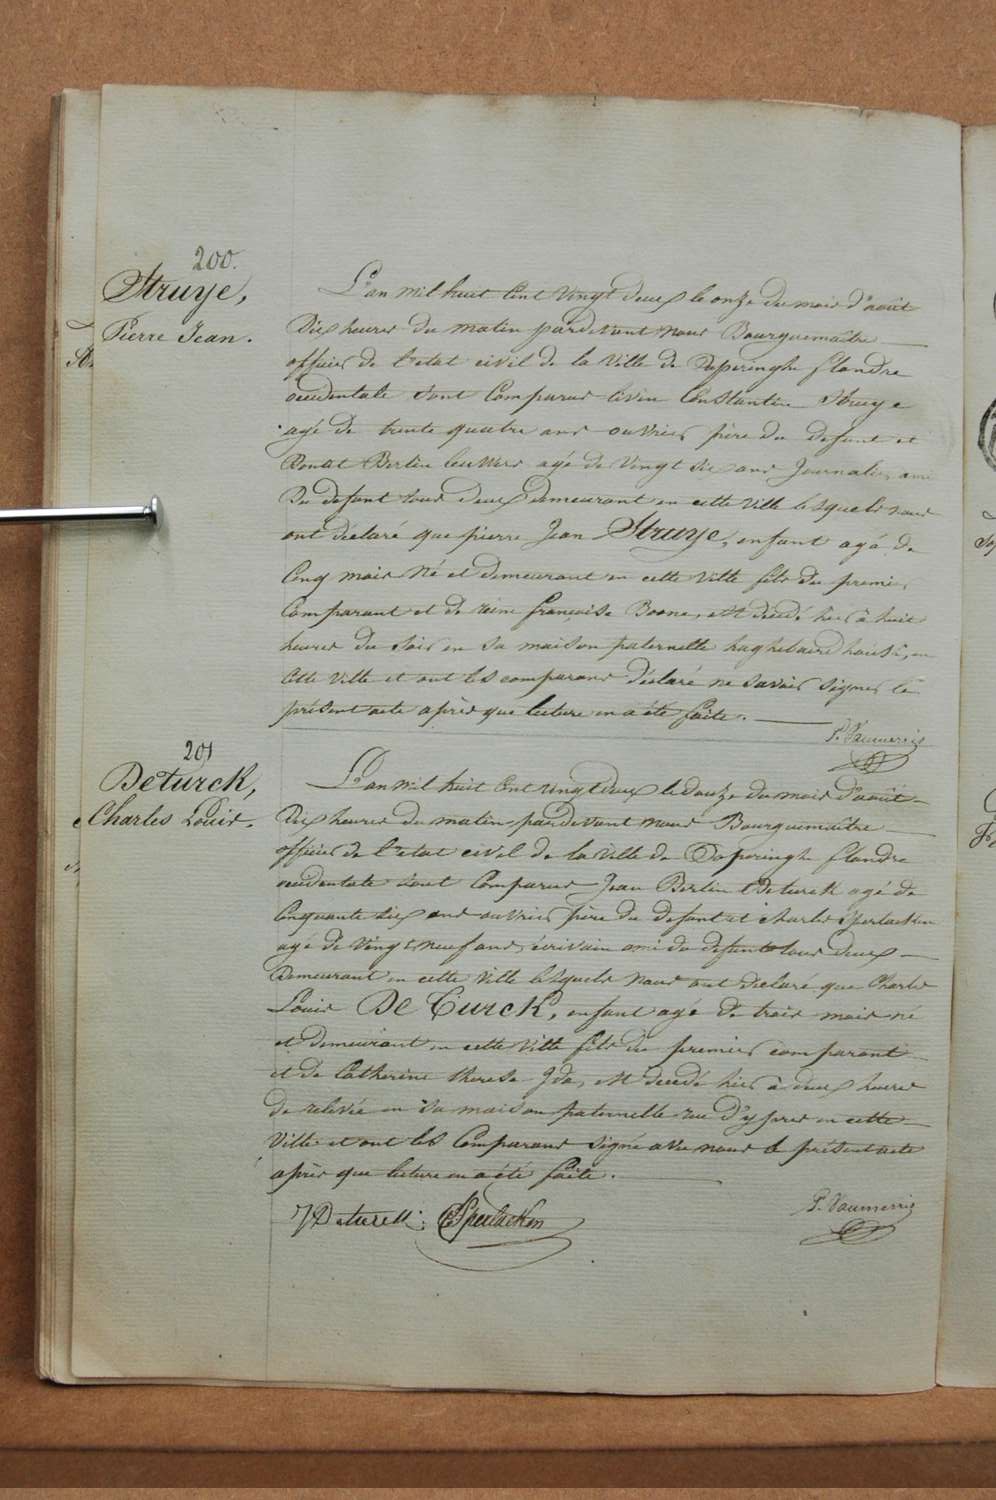 200.
Struye,
Pierre Jean.
L'an mil huit cent vingt deux le onze du mois d'août
dix heures du matin pardevant nous Bourguemaître
officier de l'etat civil de la ville de Poperinghe flandre
occidentale sont comparus Livin Constantin Struye
agé de trente quatre ans ouvrier père du defunt et
Benoit Bertin agé de vingt six ans Journalier ami
du defunt tous deux demeurant en cette ville lesquels nous
ont déclaré que pierre Jean Struye, enfant agé de
Cinq mois né et demeurant en cette ville fils du premier
Comparant et de reine françoise Boone, est décédé hier à huit
heures du soir en sa maison paternelle en
cette ville et ont les comparans déclaré ne savoir signer le
présent acte après que lecture en a été faite.
P. Vanmerris
201
DeTurck,
Charles Louis.
L'an mil huit cent vingt deux le douze du mois d'août
dix heures du matin pardevant nous Bourguemaître
officier de l'etat civil de la ville de Poperinghe flandre
occidentale sont comparus Jean Bertin Deturck agé de
Cinquante six ans ouvrier père du defunt et charles Sperlaeken
agé de vingt neuf ans écrivain ami du defunt tous deux
demeurant en cette ville lesquels nous ont declaré que Charles
Louis De Turck, enfant agé de trois mois né
et demeurant en cette ville fils du premier comparant
et de Catherine therese Ida, est decedé hier à deux heures
de relevée en sa maison paternelle rue d'ypres en cette
ville et ont les Comparans signé avec nous le présent acte
après que lecture en a été faite.
J Deturck C Sperlaeken
P. Vanmerris